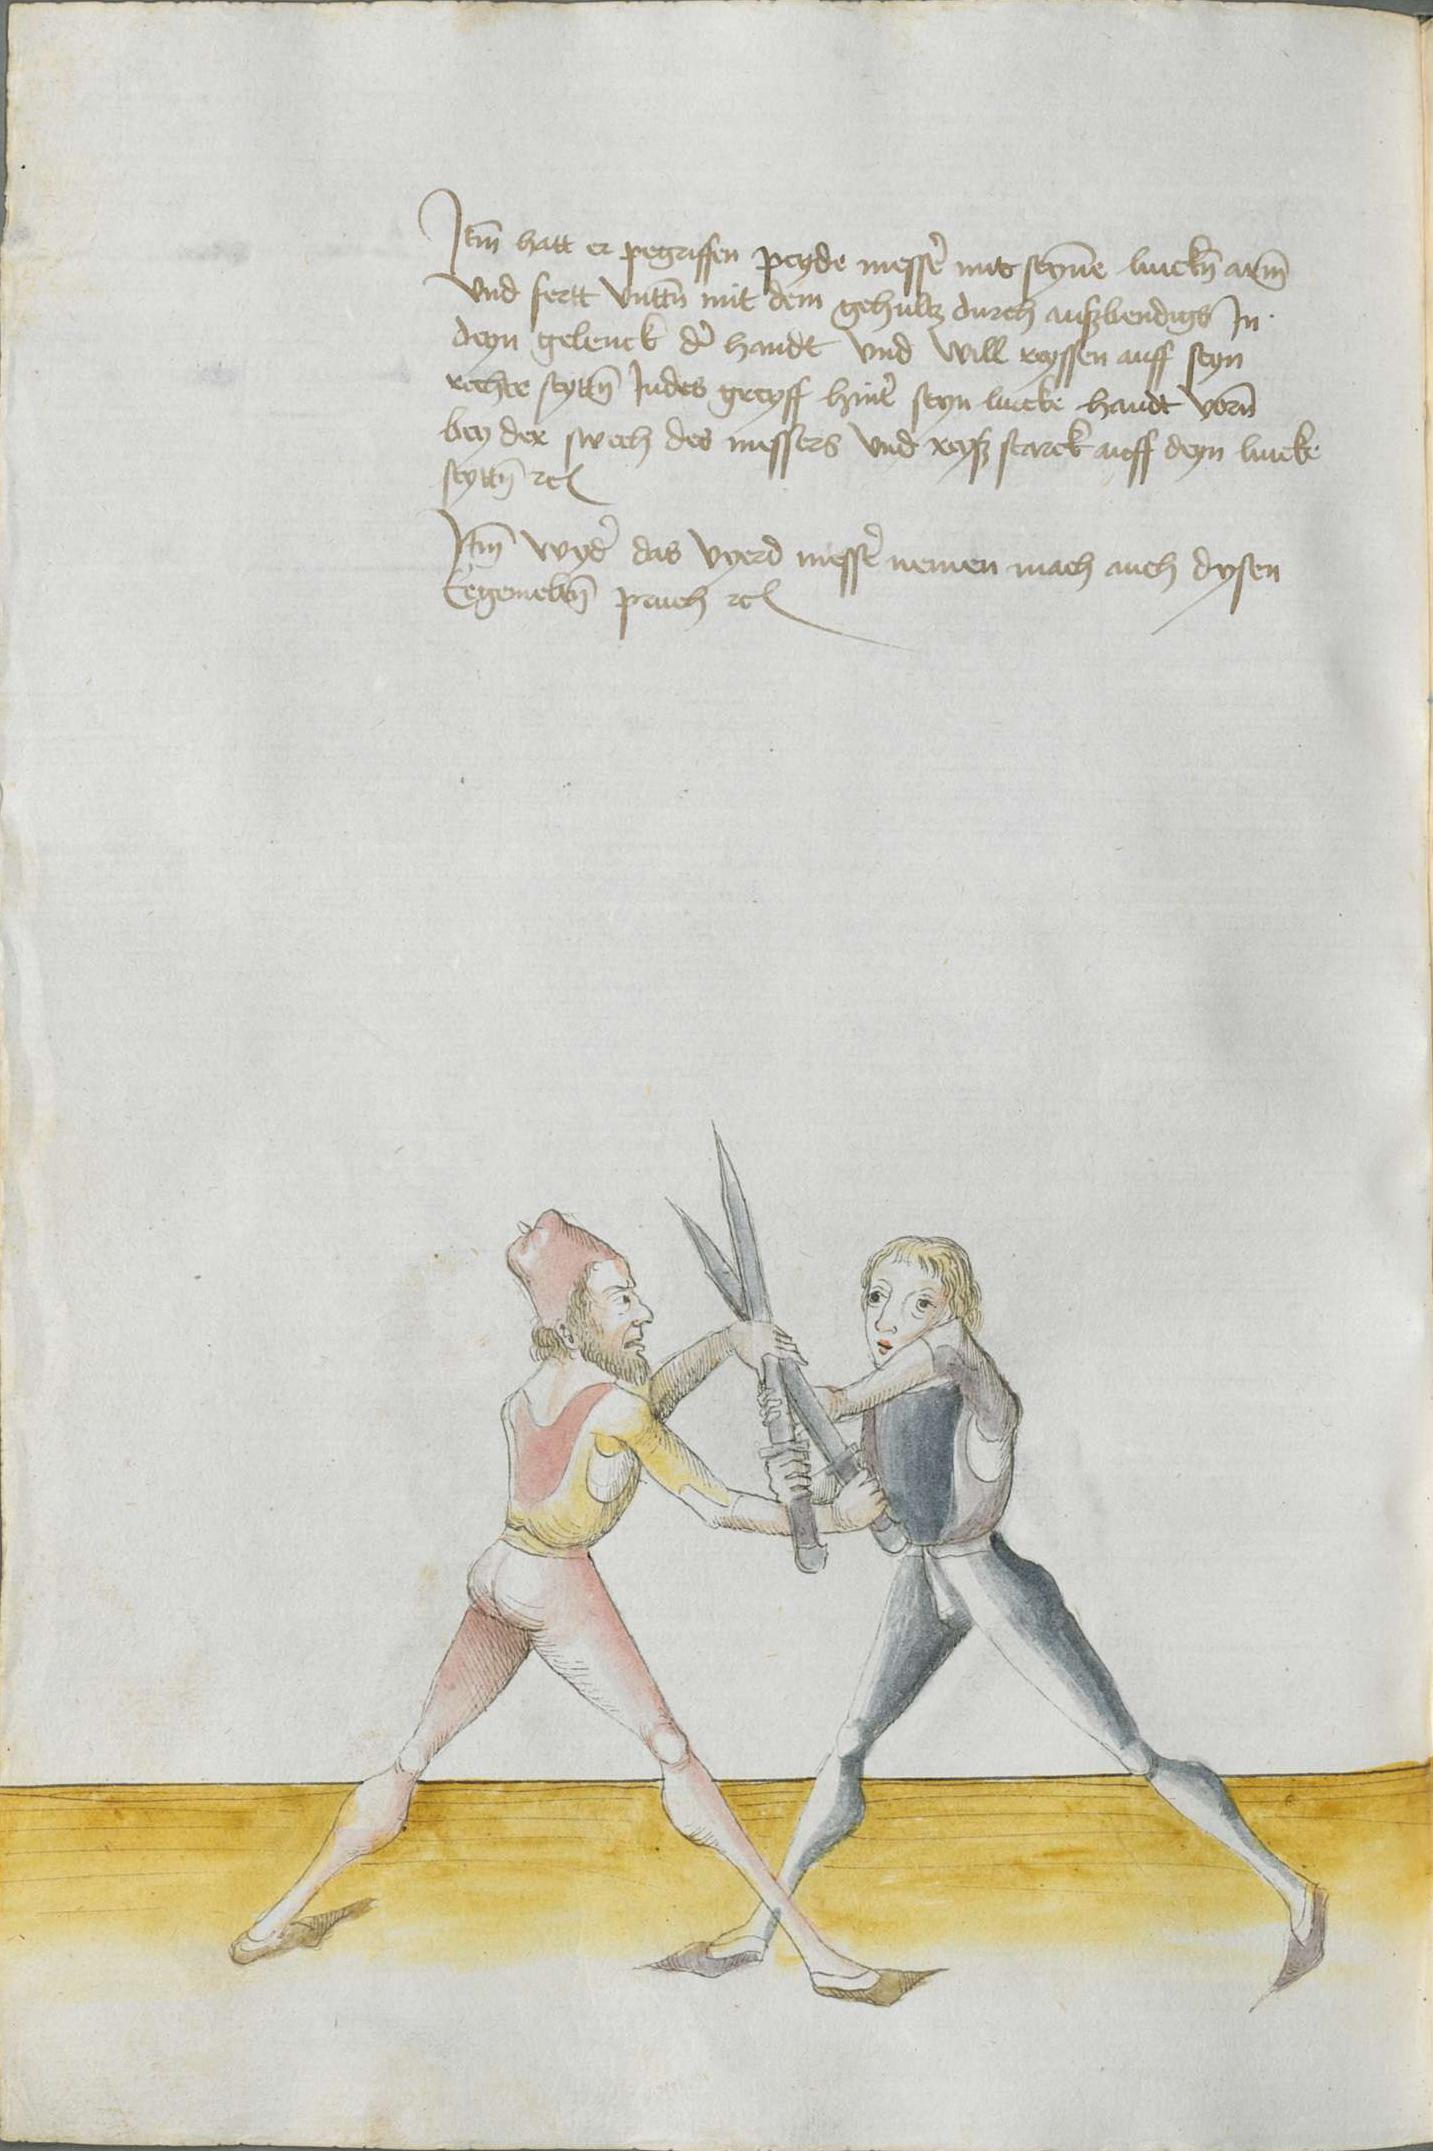 Itm̄ hatt er pegriffen peyde messer̉ mit seynē lincken̄ arm̄
vnd fertt vnttn̄ mit dem gehultz durch auszbendigs In
deyn gelenck der̉ handt vnd will reyssen auff seyn
rechte seyttn̄ Indes greyff hinter̉ seyn lincke handt vorn̄
bey der swech des messers vnd reysz starck auff deyn lincke
seyttn̄ rc
Itm̄ wyder̉ das vyerd messer̉ nemen mach auch dysen
pruch rc